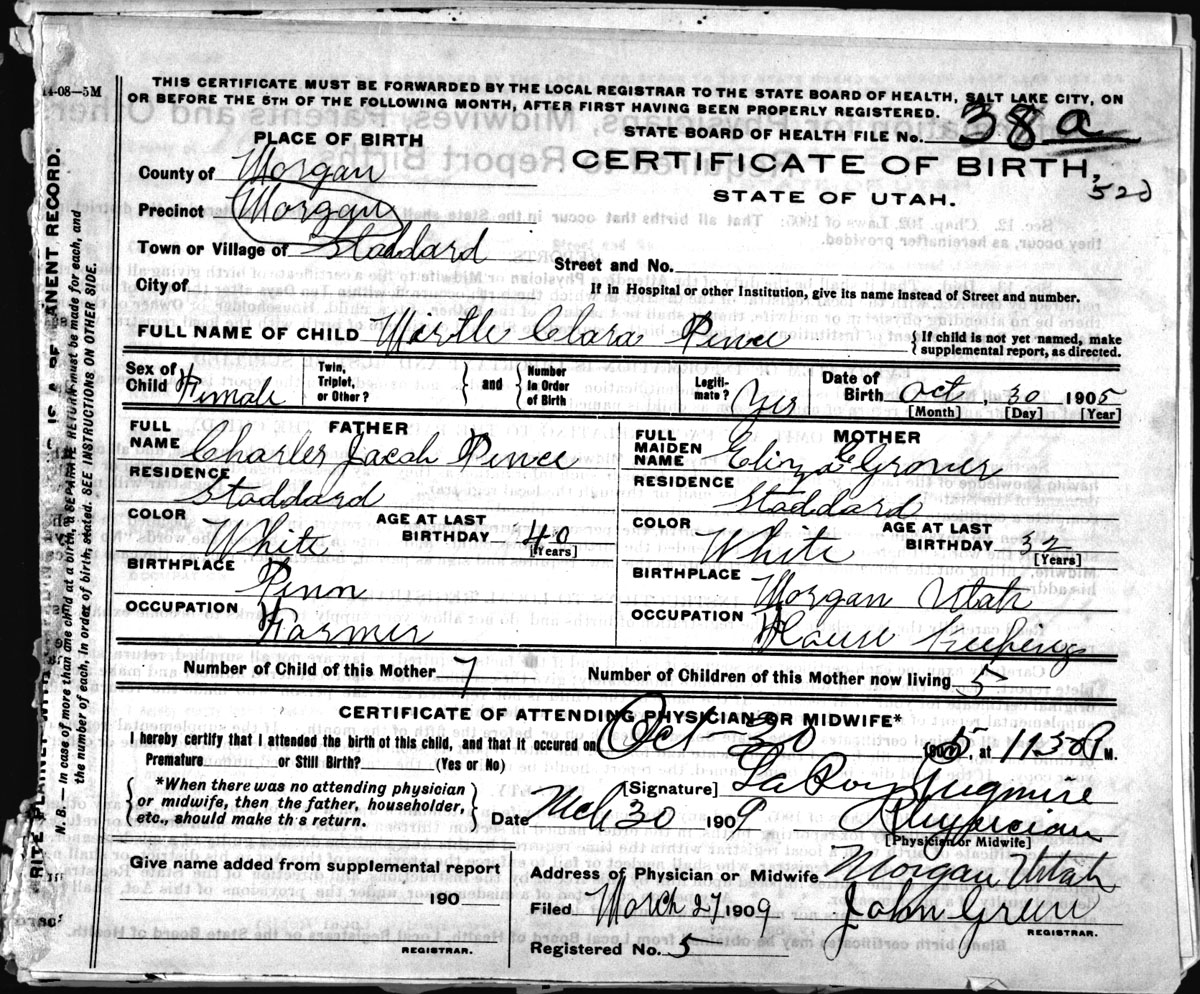 14-08—5M
THIS CERTIFICATE MUST BE FORWARDED BY THE LOCAL REGISTRAR TO THE STATE BOARD OF HEALTH, SALT LAKE CITY, ON
OR BEFORE THE 5TH OF THE FOLLOWING MONTH, AFTER FIRST HAVING BEEN PROPERLY REGISTERED.
STATE BOARD OF HEALTH FILE No. 38 a
PLACE OF BIRTH
CERTIFICATE OF BIRTH,
STATE OF UTAH.
County of Morgan
Precinct Morgan
Town or Village of Stoddard
Street and No.
City of
If in Hospital or other Institution, give its name instead of Street and number.
FULL NAME OF CHILD Mirtle Clara Pence
{ If child is not yet named, make
supplemental report, as directed.
Sex of Child Female
Twin, Triplet, or Other? } and { Number in Order of Birth
Legiti-mate? Yes
Date of Birth Oct. 30 1905
[Month] [Day] [Year]
FATHER
FULL NAME Charles Jacob Pence
RESIDENCE
Stoddard
COLOR White AGE AT LAST BIRTHDAY 40
[Years]
BIRTHPLACE
Penn
OCCUPATION
Farmer
MOTHER
FULL MAIDEN NAME Eliza E Grover
RESIDENCE
Stoddard
COLOR White AGE AT LAST BIRTHDAY 32
[Years]
BIRTHPLACE
Morgan Utah
OCCUPATION
House Keeping
Number of Child of this Mother 7 Number of Children of this Mother now living 5
CERTIFICATE OF ATTENDING PHYSICIAN OR MIDWIFE*
I hereby certify that I attended the birth of this child, and that it occured on Oct-30 1905 at 11.30 P M.
Premature or Still Birth? (Yes or No)
{ *When there was no attending physician
or midwife, then the father, householder,
etc., should make this return. }
[Signature] LaRoy Pugmire
Date Mch 30 1909 Physician
[Physician or Midwife]
Give name added from supplemental report
190
REGISTRAR.
Address of Physician or Midwife Morgan Utah
Filed March 27 1909 John Green
REGISTRAR.
Registered No. 5
N. B.—In case of more than one child at a birth, a SEPARATE RETURN must be made for each, and
the number of each, in order of birth, stated. SEE INSTRUCTIONS ON OTHER SIDE.